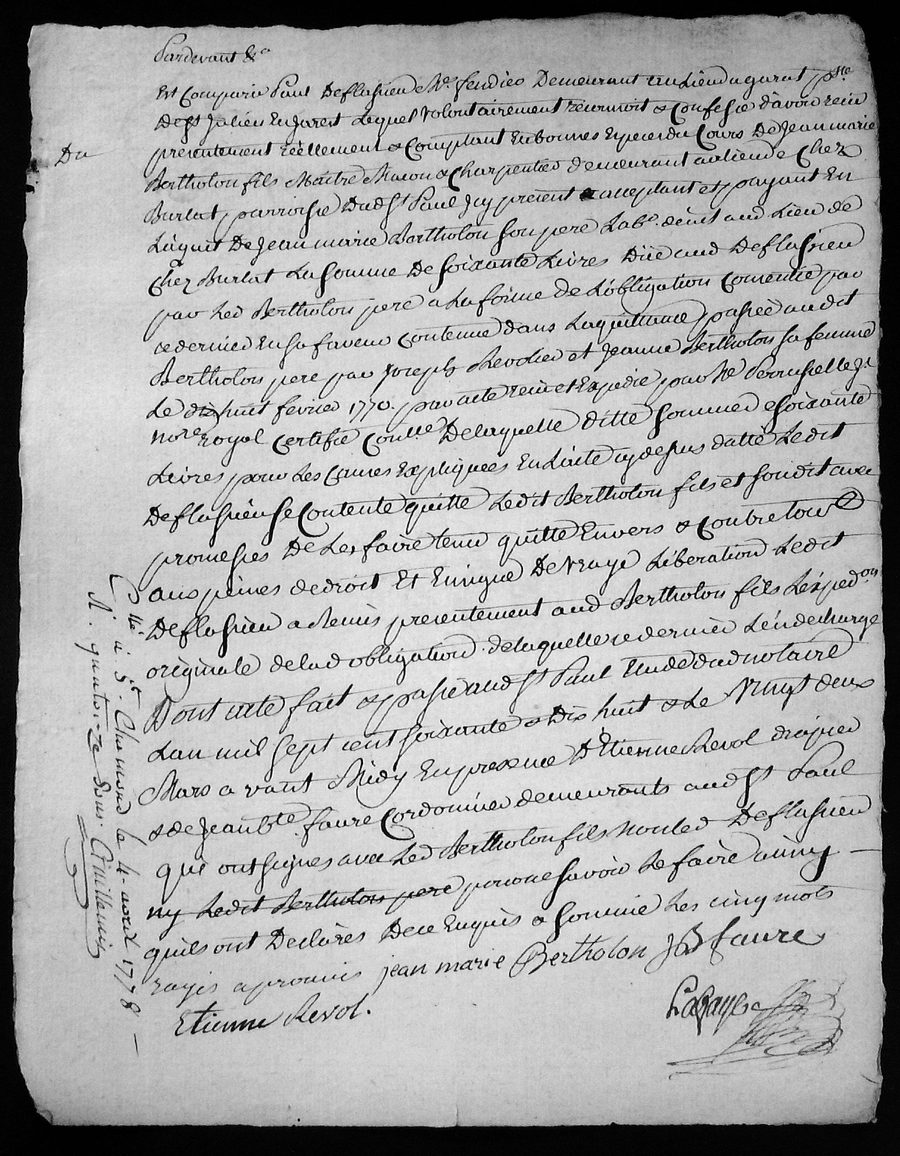 Pardevant &a
Est Comparu Paul Deflassieu Me fendieo Demeurant au Lieu du garat psse
De St Julien En Jarest Lequel Volontairement reconnoit & Confesse d'avoir recu
Du
presentement réellement & Comptant En bonnes Especes du Cours De Jean marie
Bertholon fils Maitre Macon & Charpentier demeurant au lieu de Chez
Burlat parroisse Dud St Paul Icy present & acceptant et payant En
L'aquit De Jean marie Bertholon son pere Labr deud aud Lieu de
Chez Burlat La somme De soixante Livres Düe aud Deflassieu
par Led Bertholon pere a La forme de L'obligation Consentie par
ce dernier En sa faveur Contenue dans La quittance passée audit
Bertholon pere par Joseph Chevolier et Jeanne Bertholon sa femme
Le dix huit fevrier 1770. par acte recu et Expedié par Me Perrussel le Je
nore Royal Certifié Conlle De laquelle ditte somme de soixante
Livres pour Les Causes Expliquées En L'acte cy dessus datté Ledit
Deflassieu se Contente quitte Ledit Bertholon fils et sondit avec
promesses De Les faire tenir quitte Envers & Contre tous
aux peines de droit Et En signe De vraye Liberation Ledit
Deflassieu a Remis presentement aud Bertholon fils L'expedon
originale de lad obligation de laquelle ce dernier L'en decharge
Dont acte fait & passé aud St Paul Etude dud notaire
L'an mil sept cent soixante & Dix huit & Le Vingt deux
Mars avant Midy En presence D'Etienne Revol drapier
& de Jean bte faure Cordonnier demeurants aud St Paul
qui ont signés avec Led Bertholon fils Non led Deflassieu
ny Ledit Bertholon pere pour ne savoir Le faire ainsy
quils ont Declarés De ce Enquis & sommé Les cinq mots
rayés aprouvés jean marie Bertholon JB faure
Etienne Revol.
Lafayle
Clle à St Chamond le 4. avril 1778
R. quatorze sous